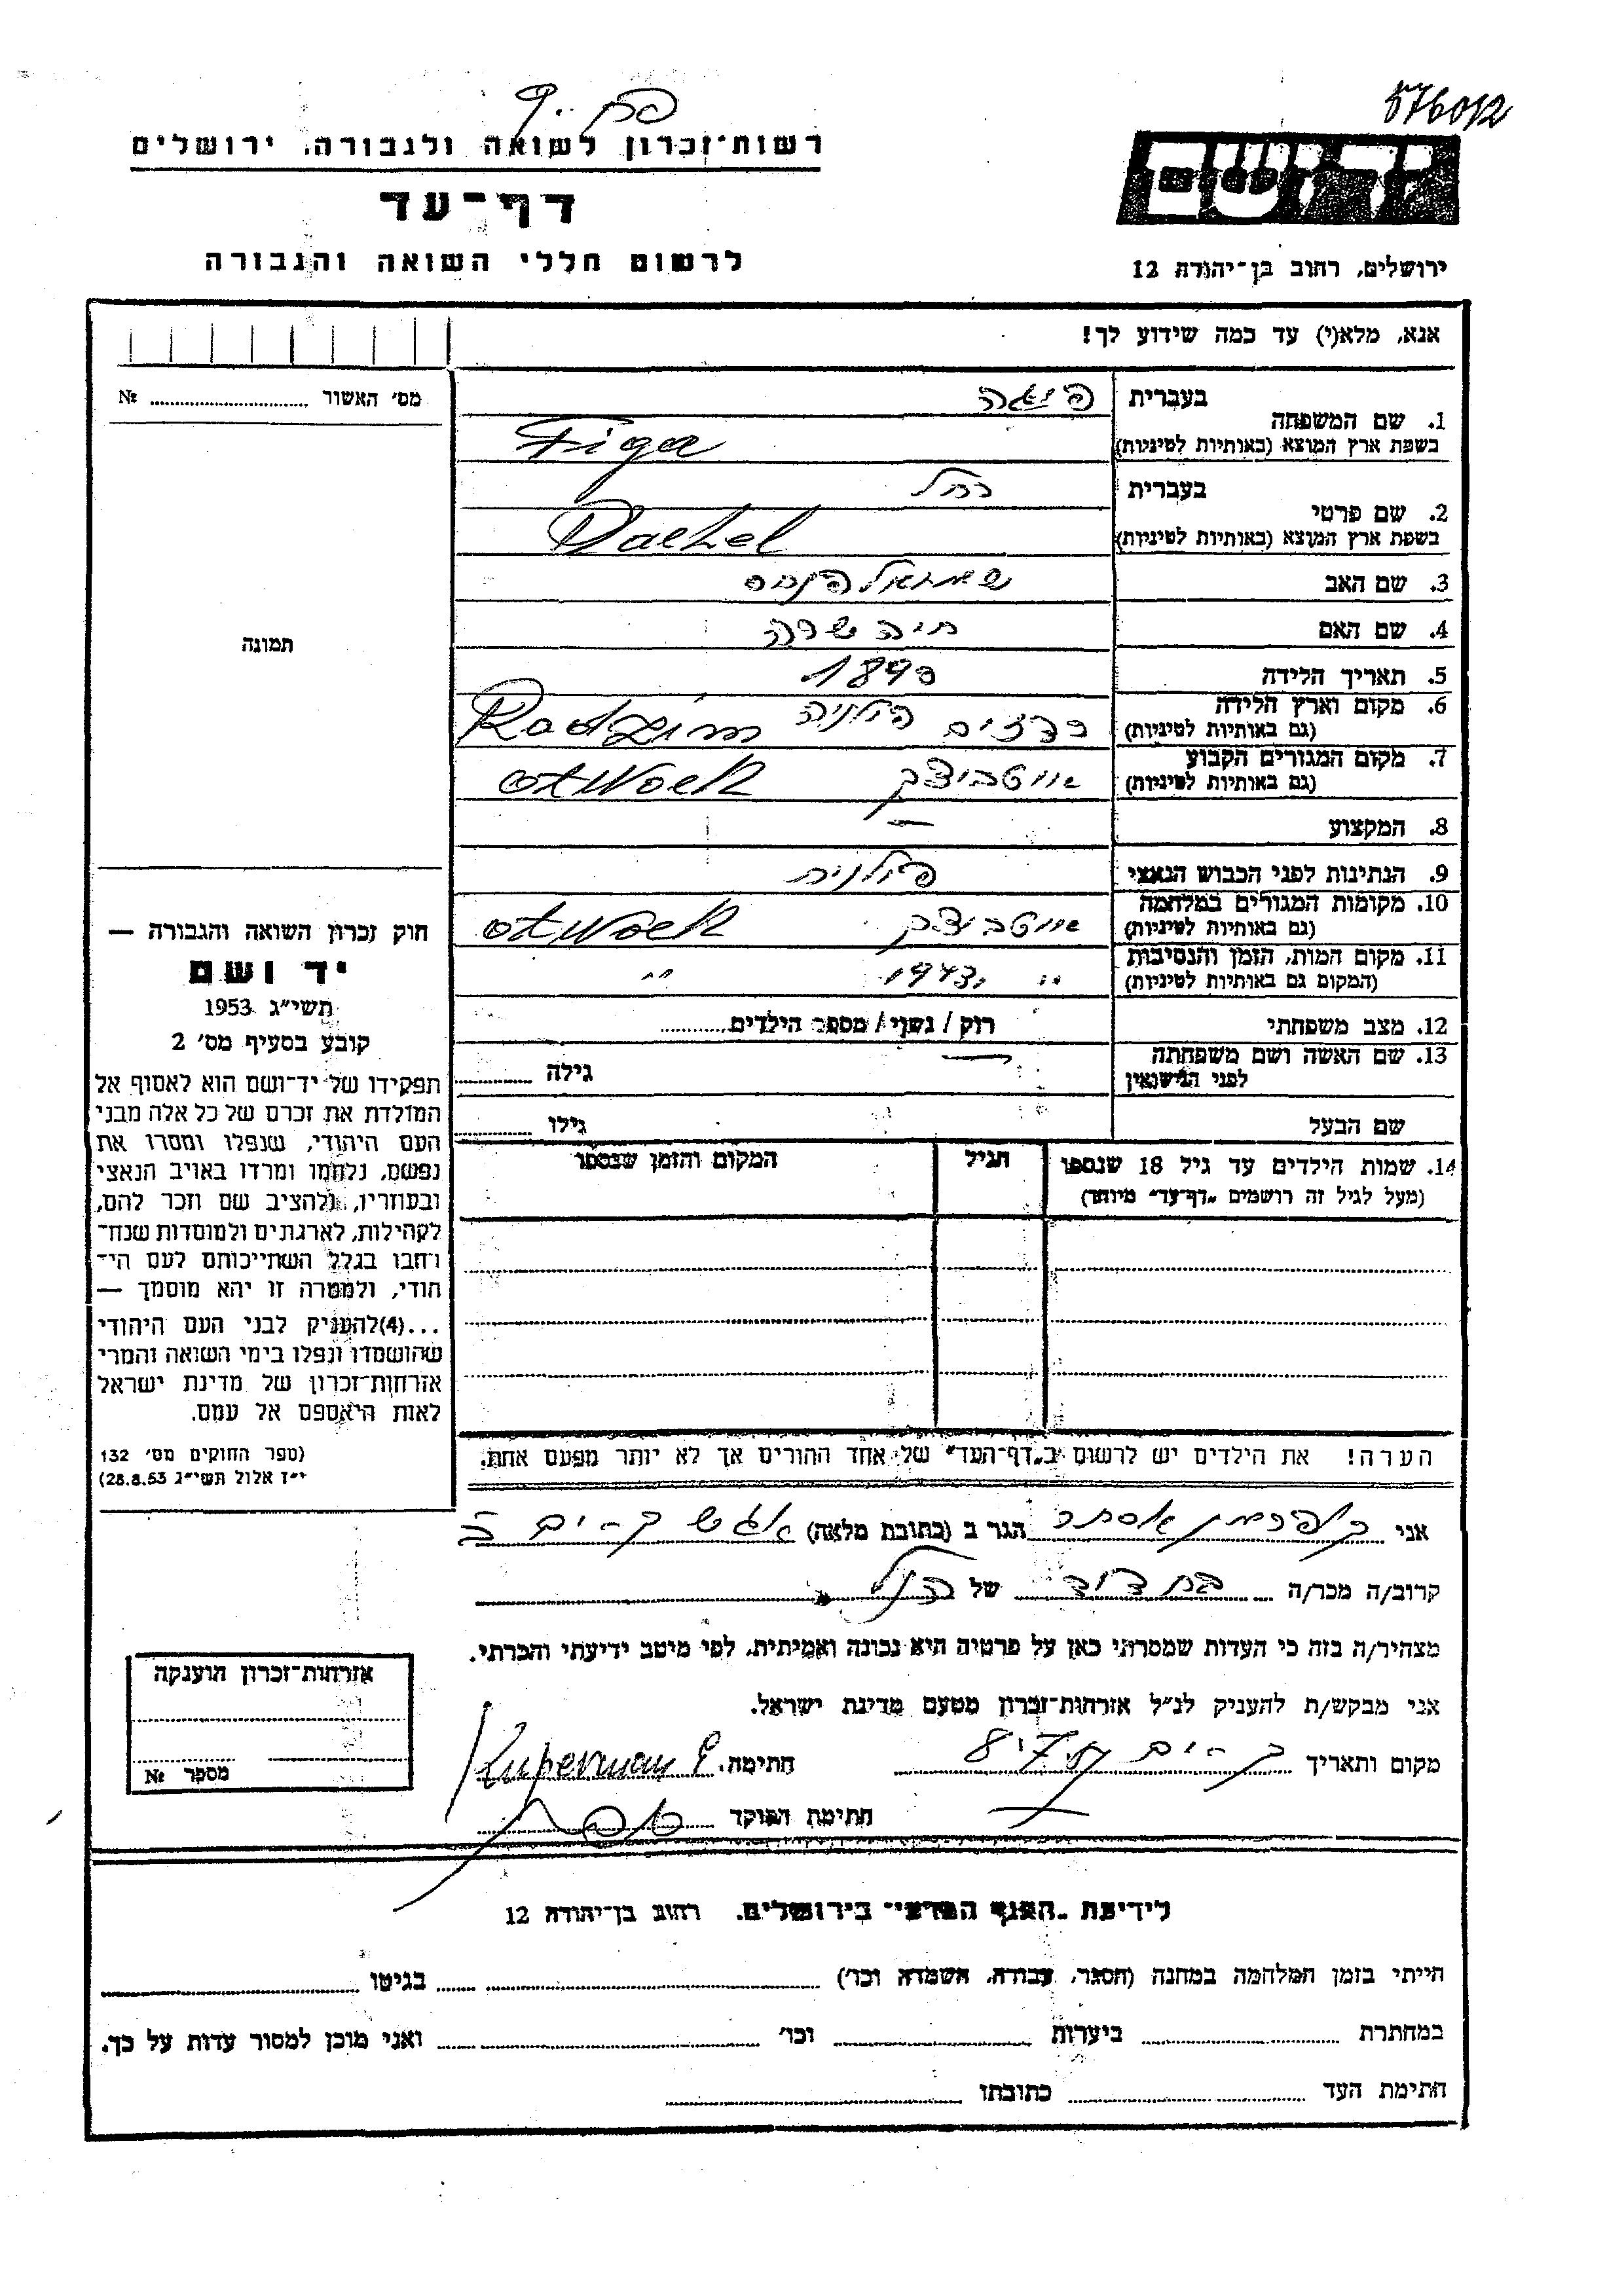 576012
רשות־זכרון לשואה ולגבורה, ירושלים
יד ושם
דף־עד
לרשום חללי השואה והגבורה
ירושלים, רחוב בן־יהודה 12
אנא, מלא(י) עד כמה שידוע לך!
מס׳ האשור № 
1. שם המשפחה
בעברית פיגה
בשפת ארץ המוצא (באותיות לטיניות) Figa
2. שם פרטי
בעברית רחל
בשפת ארץ המוצא (באותיות לטיניות) Rachel
3. שם האב שמואל פנחס
4. שם האם חיה שרה
5. תאריך הלידה 1893
6. מקום וארץ הלידה
(גם באותיות לטיניות) רדזים פולניה Radzim
7. מקום המגורים הקבוע
(גם באותיות לטיניות) אוטבוצק otwock
8. המקצוע —
9. הנתינות לפני הכבוש הנאצי פולנית
10. מקומות המגורים במלחמה
(גם באותיות לטיניות) אוטבוצק otwock
11. מקום המות, הזמן והנסיבות
(המקום גם באותיות לטיניות) " 1943 "
12. מצב משפחתי רוק / נשוי / מספר הילדים
13. שם האשה ושם משפחתה
לפני הנישואין — גילה
שם הבעל גילו
14. שמות הילדים עד גיל 18 שנספו
(מעל לגיל זה רושמים „דף־עד״ מיוחד)
הגיל
המקום והזמן שנספו
הערה! את הילדים יש לרשום ב„דף־העד״ של אחד ההורים אך לא יותר מפעם אחת.
תמונה
חוק זכרון השואה והגבורה —
יד ושם
תשי״ג 1953
קובע בסעיף מס׳ 2
תפקידו של יד־ושם הוא לאסוף אל
המולדת את זכרם של כל אלה מבני
העם היהודי, שנפלו ומסרו את
נפשם, נלחמו ומרדו באויב הנאצי
ובעוזריו, ולהציב שם וזכר להם,
לקהילות, לארגונים ולמוסדות שנח־
רחבו בגלל השתייכותם לעם הי־
חודי, ולמטרה זו יהא מוסמך —
...(4)להעניק לבני העם היהודי
שהושמדו ונפלו בימי השואה והמרי
אזרחות־זכרון של מדינת ישראל
לאות היאספם אל עמם.
(ספר החוקים מס׳ 132
י״ז אלול תשי״ג 28.8.53)
אני קופרמן אסתר הגר ב (כתובת מלאה)
קרוב/ה מכר/ה בת דוד של הנ״ל
מצהיר/ה בזה כי העדות שמסרתי כאן על פרטיה היא נכונה ואמיתית, לפי מיטב ידיעתי והכרתי.
אני מבקש/ת להעניק לנ״ל אזרחות־זכרון מטעם מדינת ישראל.
מקום ותאריך חתימה. Kuperman E
חתימת הפוקד
אזרחות־זכרון הוענקה
מספר №
לידיעת „האגף המדעי״ בירושלים. רחוב בן־יהודה 12
הייתי בזמן המלחמה במחנה (הסגר, עבודה, השמדה וכו׳) בגיטו
במחתרת ביערות וכו׳ ואני מוכן למסור עדות על כך.
חתימת העד כתובתו